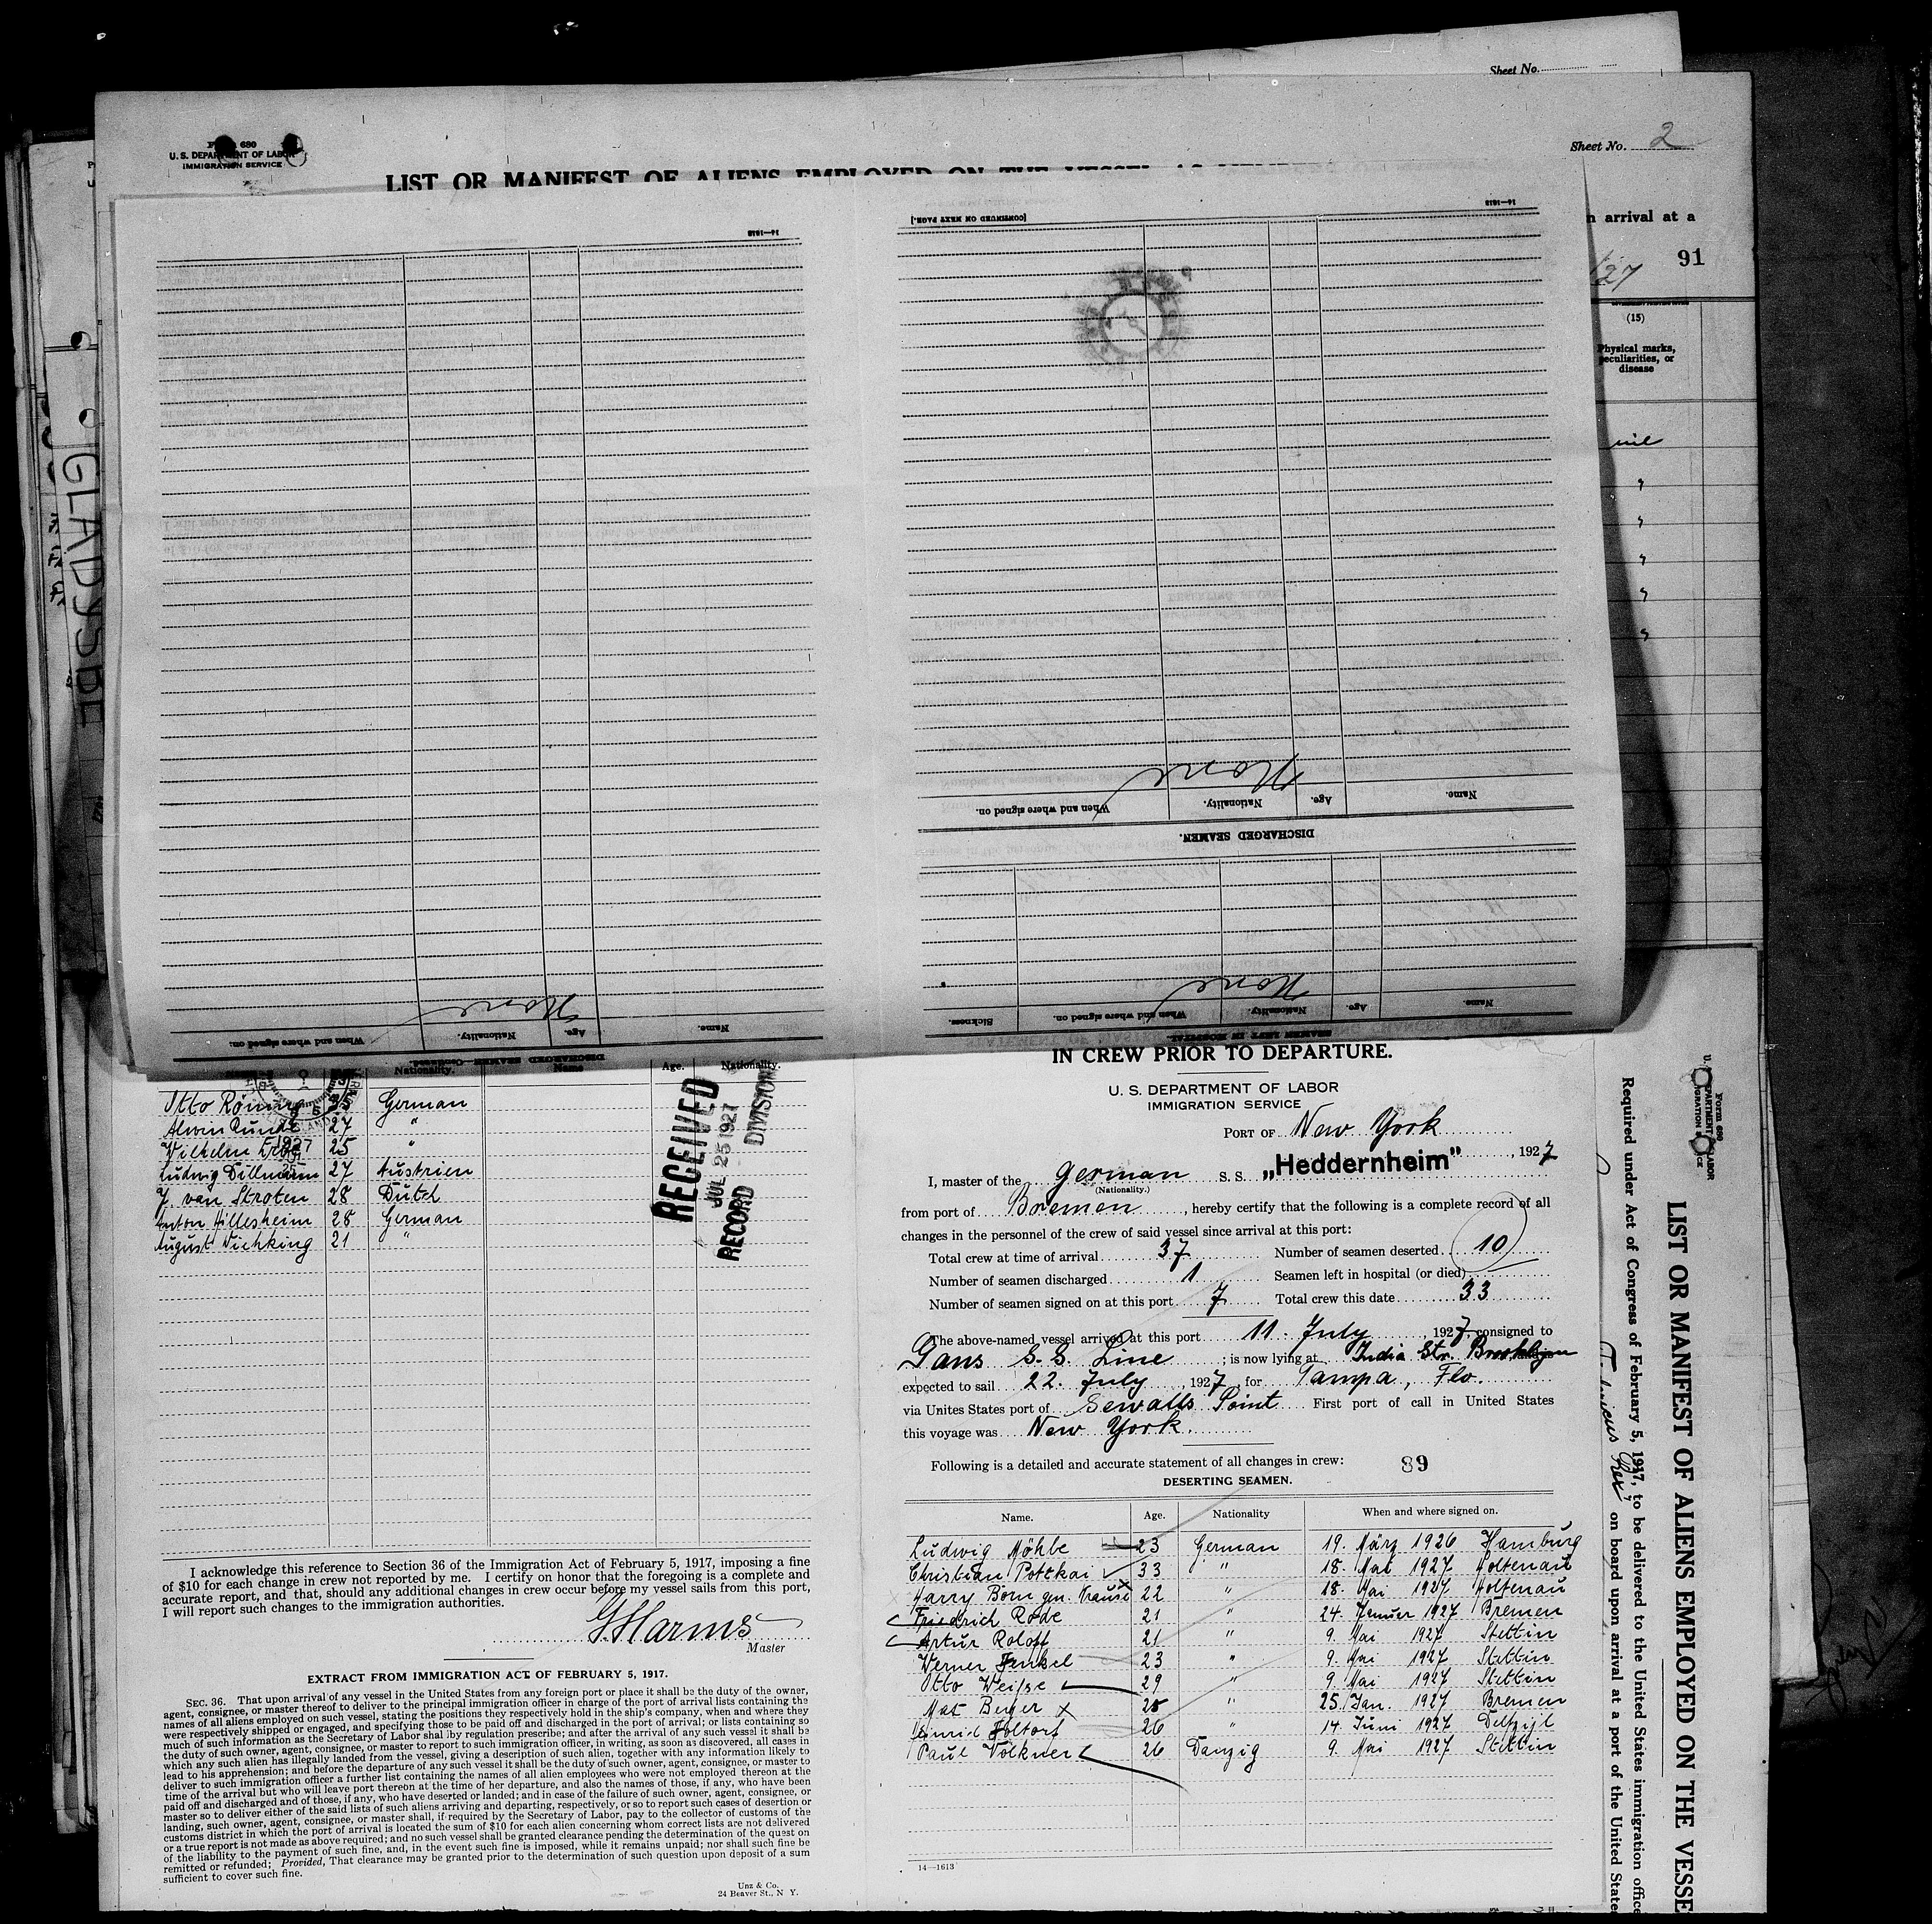 Sheet No.
Form 680
U. S. DEPARTMENT OF LABOR
IMMIGRATION SERVICE
Sheet No. 2
LIST OR MANIFEST OF ALIENS EMPLOYED ON THE VESSEL
n arrival at a
/27
91
(15)
Physical marks, peculiarities, or disease
nil
"
"
"
"
"
GLADYSBE
14—1613
14—1613
[CONTINUED ON NEXT PAGE.]
None
Name. Age. Nationality. When and where signed on.
DISCHARGED SEAMEN.
None
Name. Age. Nationality. When and where signed on. Sickness.
SEAMEN LEFT IN HOSPITAL.
None
Name. Age. Nationality. When and where signed on:
DISCHARGED SEAMEN—Continued.
Nationality. Name Age. Nationality.
Otto Rönn 35 German
Alwin Runde 27 "
Wilhelm 25
Ludwig Dillmann 27 Austrien
J. van Stroten 28 Dutch
Anton Hillesheim 28 German
August Viehking 21 "
RECEIVED
JUL 25 1927
RECORD DIVISION
I acknowledge this reference to Section 36 of the Immigration Act of February 5, 1917, imposing a fine
of $10 for each change in crew not reported by me. I certify on honor that the foregoing is a complete and
accurate report, and that, should any additional changes in crew occur before my vessel sails from this port,
I will report such changes to the immigration authorities.
G Harms
Master
EXTRACT FROM IMMIGRATION ACT OF FEBRUARY 5, 1917.
SEC. 36. That upon arrival of any vessel in the United States from any foreign port or place it shall be the duty of the owner,
agent, consignee, or master thereof to deliver to the principal immigration officer in charge of the port of arrival lists containing the
names of all aliens employed on such vessel, stating the positions they respectively hold in the ship's company, when and where they
were respectively shipped or engaged, and specifying those to be paid off and discharged in the port of arrival; or lists containing so
much of such information as the Secretary of Labor shal lby regulation prescribe; and after the arrival of any such vessel it shall be
the duty of such owner, agent, consignee, or master to report to such immigration officer, in writing, as soon as discovered, all cases in
which any such alien has illegally landed from the vessel, giving a description of such alien, together with any information likely to
lead to his apprehension; and before the departure of any such vessel it shall be the duty of such owner, agent, consignee, or master to
deliver to such immigration officer a further list containing the names of all alien employees who were not employed thereon at the
time of the arrival but who will leave port thereon at the time of her departure, and also the names of those, if any, who have been
paid off and discharged and of those, if any, who have deserted or landed; and in case of the failure of such owner, agent, consignee, or
master so to deliver either of the said lists of such aliens arriving and departing, respectively, or so to report such cases of desertion or
landing, such owner, agent, consignee, or master shall, if required by the Secretary of Labor, pay to the collector of customs of the
customs district in which the port of arrival is located the sum of $10 for each alien concerning whom correct lists are not delivered
or a true report is not made as above required; and no such vessel shall be granted clearance pending the determination of the quest on
of the liability to the payment of such fine, and, in the event such fine is imposed, while it remains unpaid; nor shall such fine be
remitted or refunded; Provided, That clearance may be granted prior to the determination of such question upon deposit of a sum
sufficient to cover such fine.
Unz & Co.
24 Beaver St., N. Y.
IN CREW PRIOR TO DEPARTURE.
U. S. DEPARTMENT OF LABOR
IMMIGRATION SERVICE
PORT OF New York
, 1927
I, master of the German S. S. „Heddernheim"
(Nationality.)
from port of Bremen, hereby certify that the following is a complete record of all
changes in the personnel of the crew of said vessel since arrival at this port:
Total crew at time of arrival 37 Number of seamen deserted 10
Number of seamen discharged 1 Seamen left in hospital (or died)
Number of seamen signed on at this port 7 Total crew this date 33
The above-named vessel arrived at this port 11. July, 1927, consigned to
Gans S. S. Line; is now lying at India Str. Brooklyn
expected to sail 22. July, 1927, for Tampa, Flo.
via Unites States port of Sewalls Point First port of call in United States
this voyage was New York.
Following is a detailed and accurate statement of all changes in crew: 89
DESERTING SEAMEN.
Name. Age. Nationality When and where signed on.
Ludwig Möhbe 23 German 19. März 1926 Hamburg
Christian Potzkai 33 " 18. Mai 1927 Holtenau
Harry Born gen. Krause 22 " 18. Mai 1927 Holtenau
Friedrich Rode 21 " 24. Januar 1927 Bremen
Artur Roloff 21 " 9. Mai 1927 Stettin
Werner Henkel 23 " 9. Mai 1927 Stettin
Otto Weiße 29 " 9. Mai 1927 Stettin
Mat Berger 25 " 25. Jan. 1927 Bremen
Holtorf 26 " 14. Juni 1927 Delfzijl
Paul Volkner 26 Danzig 9. Mai 1927 Stettin
14—1613
Form 680
U. S. DEPARTMENT OF LABOR
IMMIGRATION SERVICE
LIST OR MANIFEST OF ALIENS EMPLOYED ON THE VESSE
Required under Act of Congress of February 5, 1917, to be delivered to the United States immigration office
on board upon arrival at a port of the United State